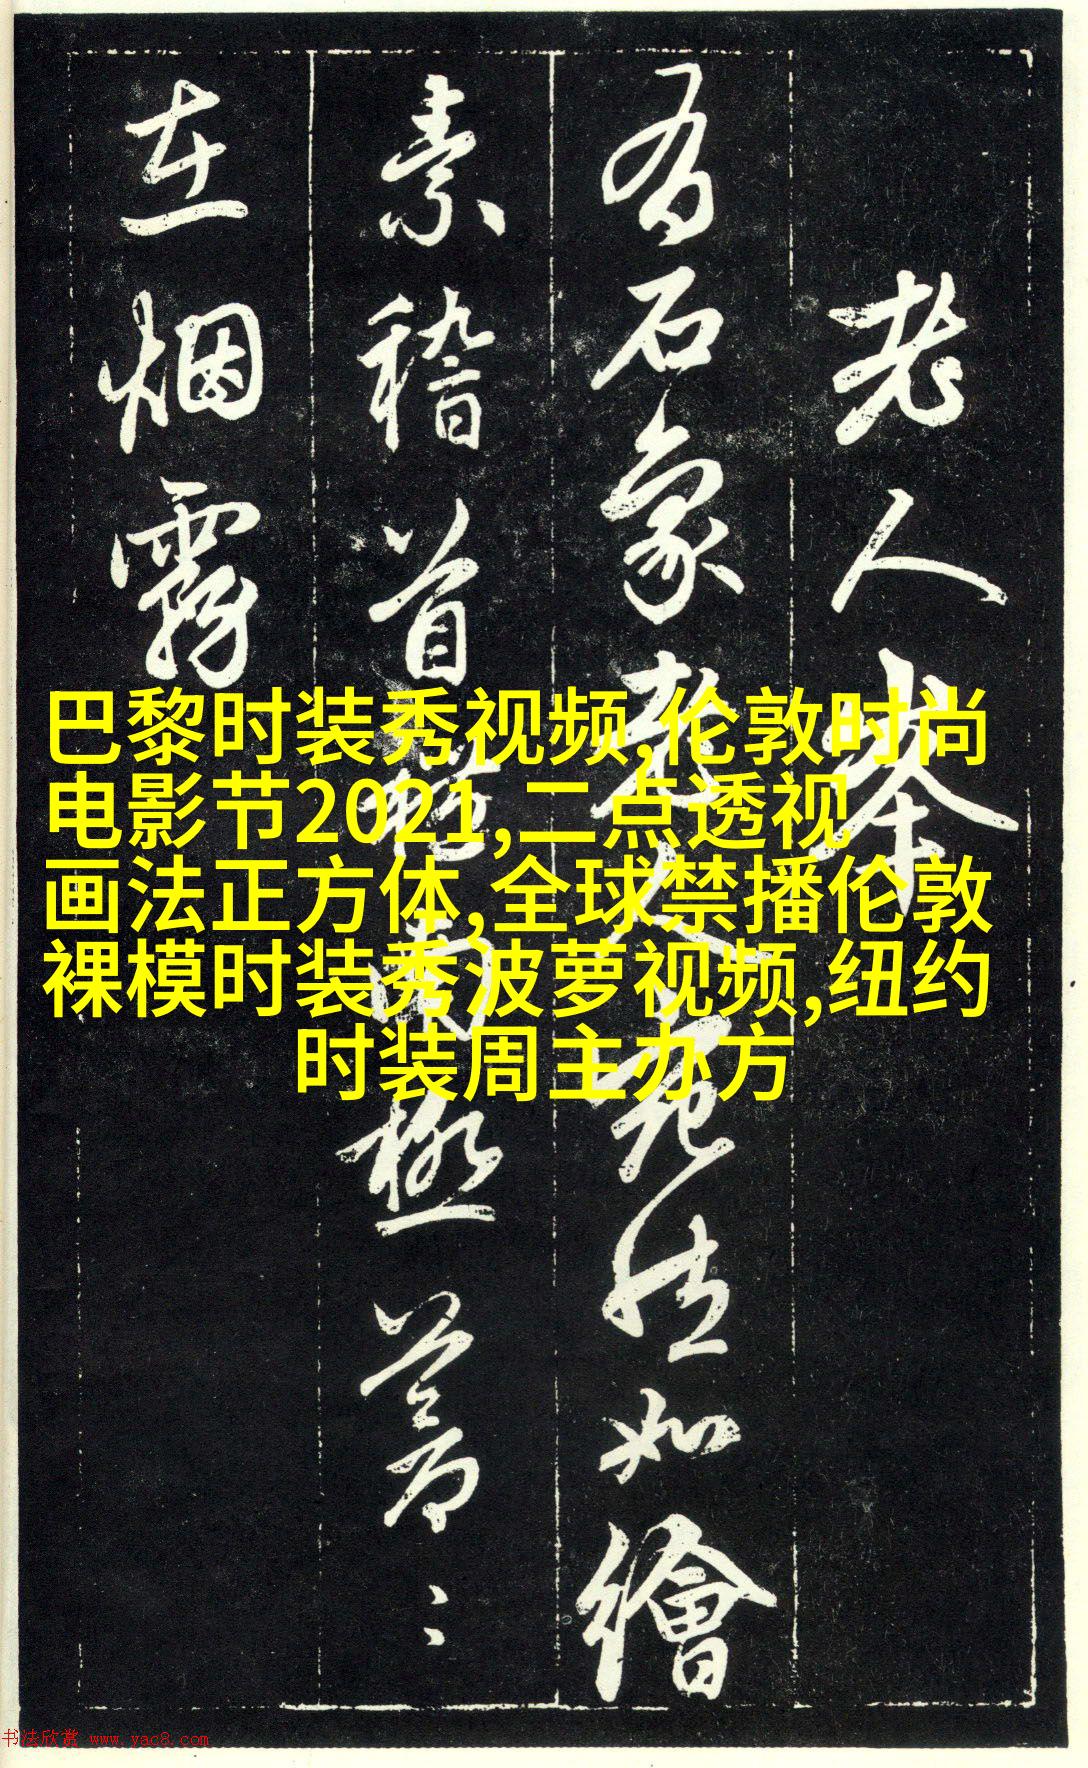 老人峯
有石象老人宛然如繪
素稽首禮南極蒼蒼〻
在烟霧
巴黎时装秀视频,伦敦时尚
电影节2021,二点透视
画法正方体,全球禁播伦敦
裸模时装秀波萝视频,纽约
时装周主办方
书法欣赏 www.yac8.com